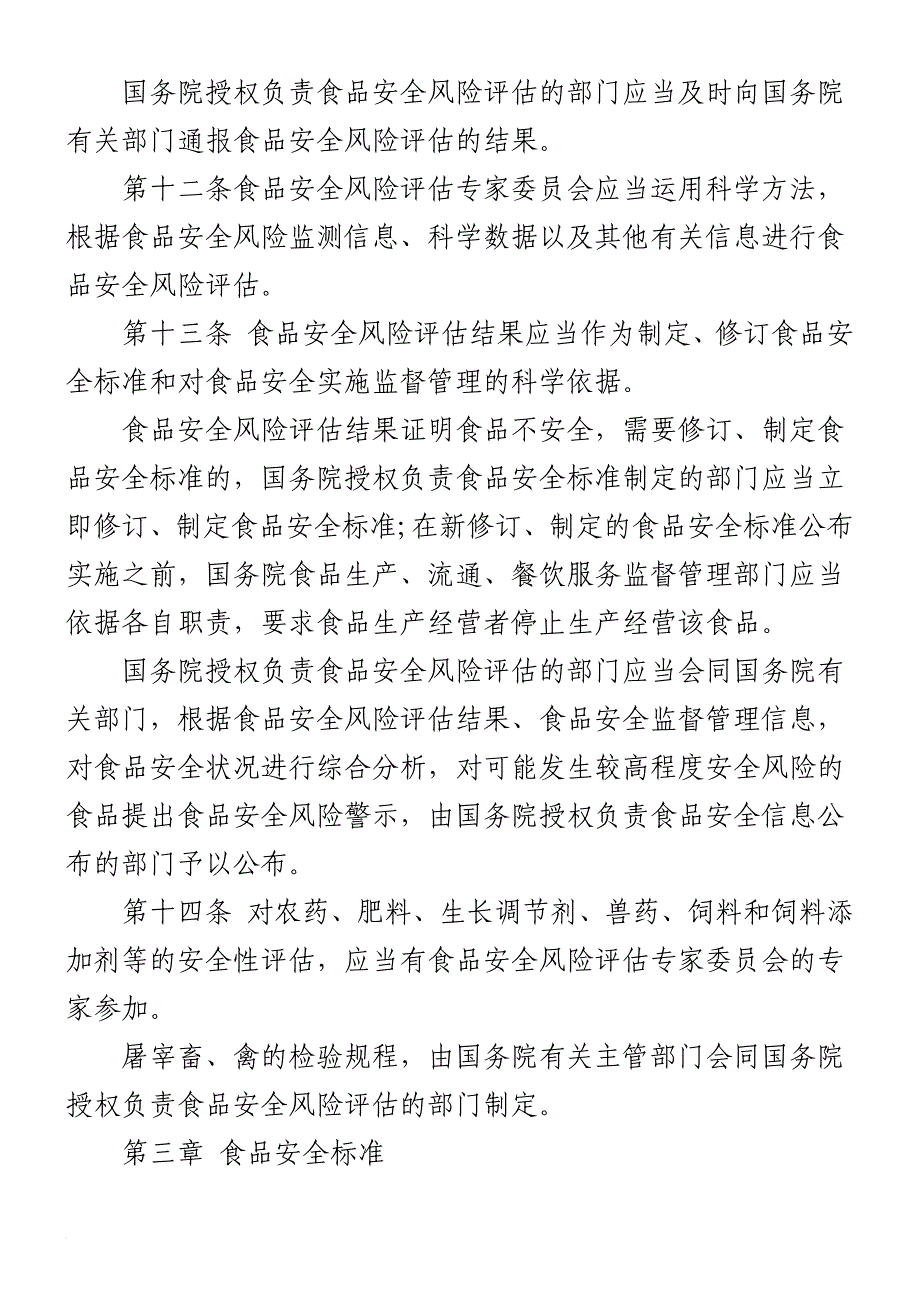 国务院授权负责食品安全风险评估的部门应当及时向国务院
有关部门通报食品安全风险评估的结果。
第十二条食品安全风险评估专家委员会应当运用科学方法，
根据食品安全风险监测信息、科学数据以及其他有关信息进行食
品安全风险评估。
第十三条 食品安全风险评估结果应当作为制定、修订食品安
全标准和对食品安全实施监督管理的科学依据。
食品安全风险评估结果证明食品不安全，需要修订、制定食
品安全标准的，国务院授权负责食品安全标准制定的部门应当立
即修订、制定食品安全标准;在新修订、制定的食品安全标准公布
实施之前，国务院食品生产、流通、餐饮服务监督管理部门应当
依据各自职责，要求食品生产经营者停止生产经营该食品。
国务院授权负责食品安全风险评估的部门应当会同国务院有
关部门，根据食品安全风险评估结果、食品安全监督管理信息，
对食品安全状况进行综合分析，对可能发生较高程度安全风险的
食品提出食品安全风险警示，由国务院授权负责食品安全信息公
布的部门予以公布。
第十四条 对农药、肥料、生长调节剂、兽药、饲料和饲料添
加剂等的安全性评估，应当有食品安全风险评估专家委员会的专
家参加。
屠宰畜、禽的检验规程，由国务院有关主管部门会同国务院
授权负责食品安全风险评估的部门制定。
第三章 食品安全标准